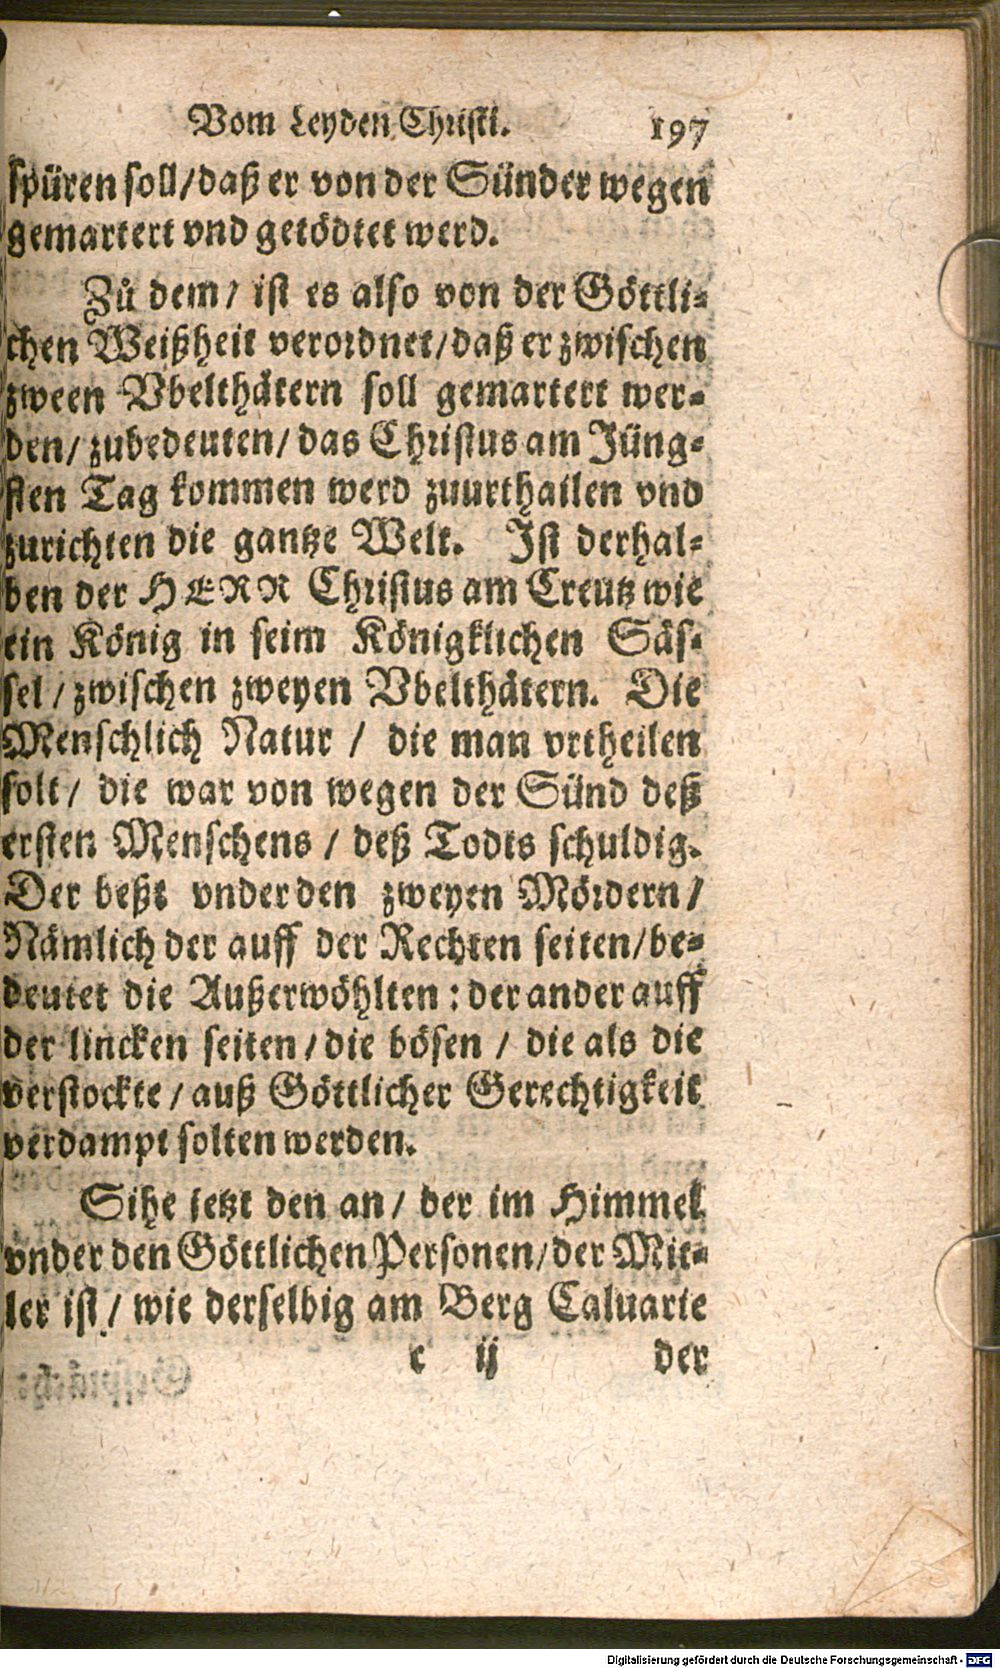 Vom Leyden Christi. 197
spüren soll/daß er von der Sünder wegen
gemartert vnd getödtet werd.
Zů dem/ ist es also von der Göttli-
chen Weißheit verordnet/daß er zwischen
zween Vbelthätern soll gemartert wer-
den/ zubedeuten/ das Christus am Jüng-
sten Tag kommen werd zuurthailen vnd
zurichten die gantze Welt. Ist derhal-
ben der HERR Christus am Creutz wie
ein König in seim Königklichen Säs-
sel/ zwischen zweyen Vbelthätern. Die
Menschlich Natur / die man vrtheilen
solt/ die war von wegen der Sünd deß
ersten Menschens / deß Todts schuldig.
Der beßt vnder den zweyen Mördern/
Nämlich der auff der Rechten seiten/be-
deutet die Außerwöhlten: der ander auff
der lincken seiten/die bösen / die als die
verstockte/ auß Göttlicher Gerechtigkeit
verdampt solten werden.
Sihe jetzt den an/ der im Himmel
vnder den Göttlichen Personen/der Mit-
ler ist/ wie derselbig am Berg Caluarie
c ij der
Digitalisierung gefördert durch die Deutsche Forschungsgemeinschaft - DFG